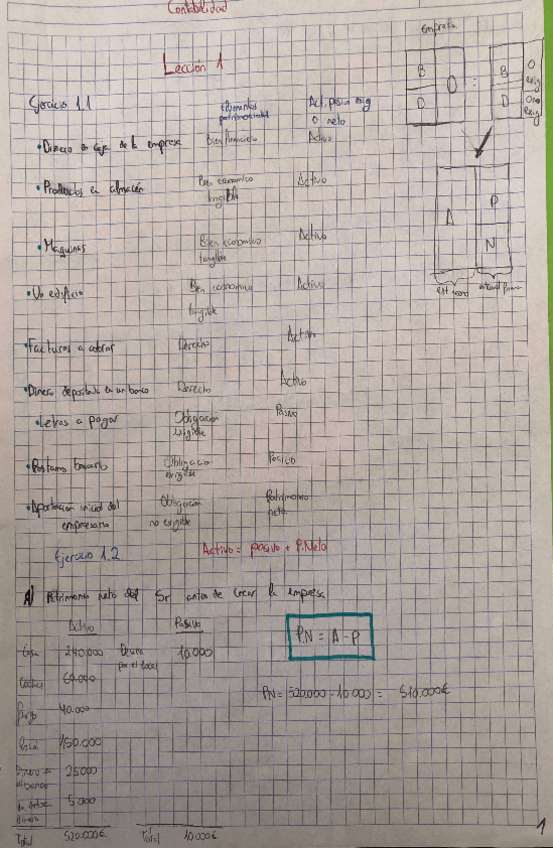 Contabilidad
Lección 1
Empresa
B O = B O exig
D D O no exig
Ejercicio 1.1
Elementos patrimoniales
Act, pasivo exig o neto
• Dinero en caja de la empresa Bien financiero Activo
• Productos en almacén Bien economico tangible Activo
• Maquinas Bien economico tangible Activo
• Un edificio Bien economico tangible Activo
A P
N
est econo
• Facturas a cobrar Derecho Activo
• Dinero depositado en un banco Derecho Activo
• Letras a pagar Obligacion exigible Pasivo
• Prestamo bancario Obligacion exigible Pasivo
• Aportacion inicial del empresario Obligacion no exigible Patrimonio neto
Ejercicio 1.2 Activo = pasivo + P.Neto
A) Patrimonio neto del Sr antes de crear la empresa
Activo Pasivo
Casa 240.000 Deuda por el local 10.000
PN = A - P
Coches 60.000
PN = 520.000 - 10.000 = 510.000€
40.000
Local 150.000
Dinero en el banco 25000
Le deben dinero 5.000
Total 520.000€ Total 10.000€
1